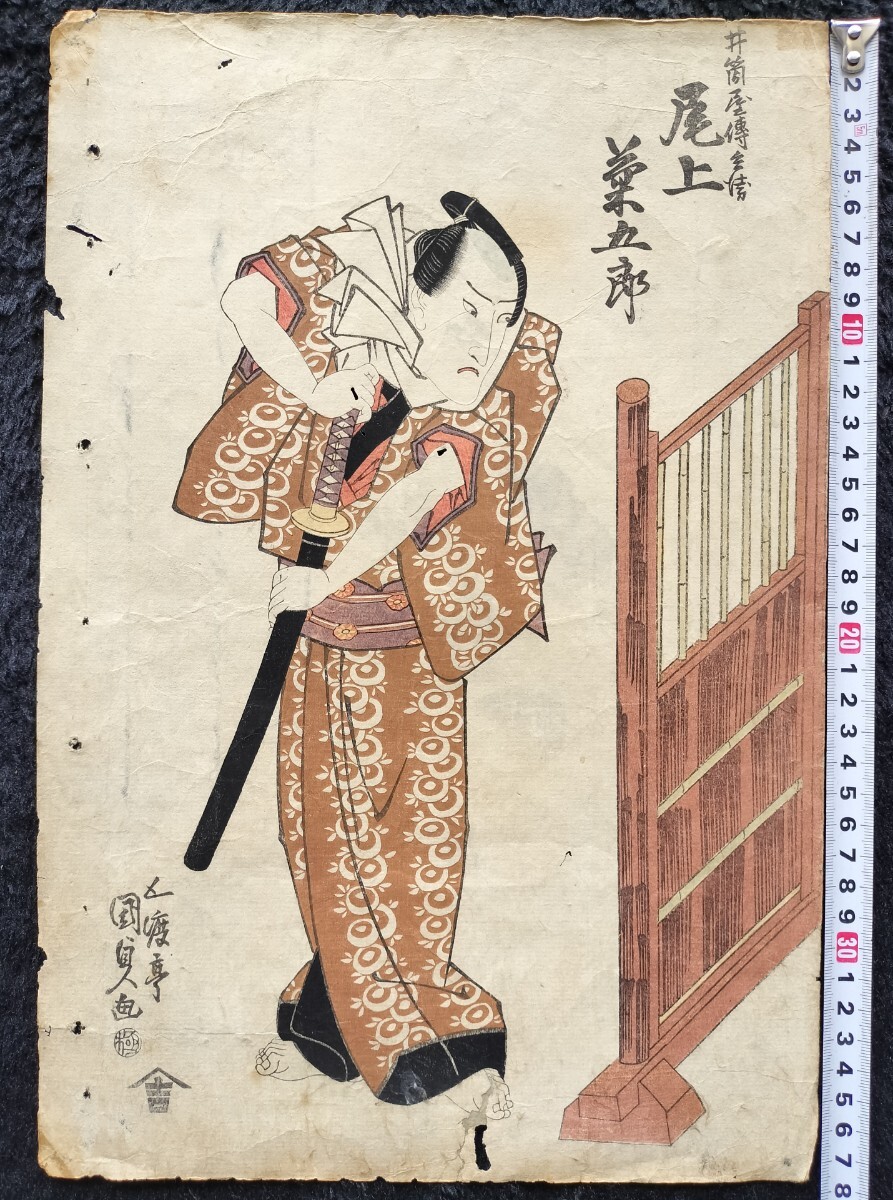 井筒屋傳兵衛
尾上
菊五郎
五渡亭
國貞画
極
吉
2
3
4
5
6
7
8
9
10
1
2
3
4
5
6
7
8
9
20
1
2
3
4
5
6
7
8
9
30
1
2
3
4
5
6
7
8